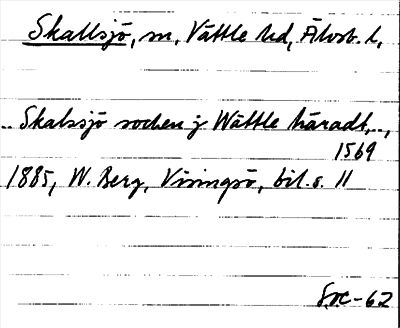 Skallsjö, sn, Vättle hd, Älvsb. l,
.. Skalssjö sochen j Wättle häradt...,
1569
1885, W. Berg, Visingsö, bil. s. 11
Soc-62